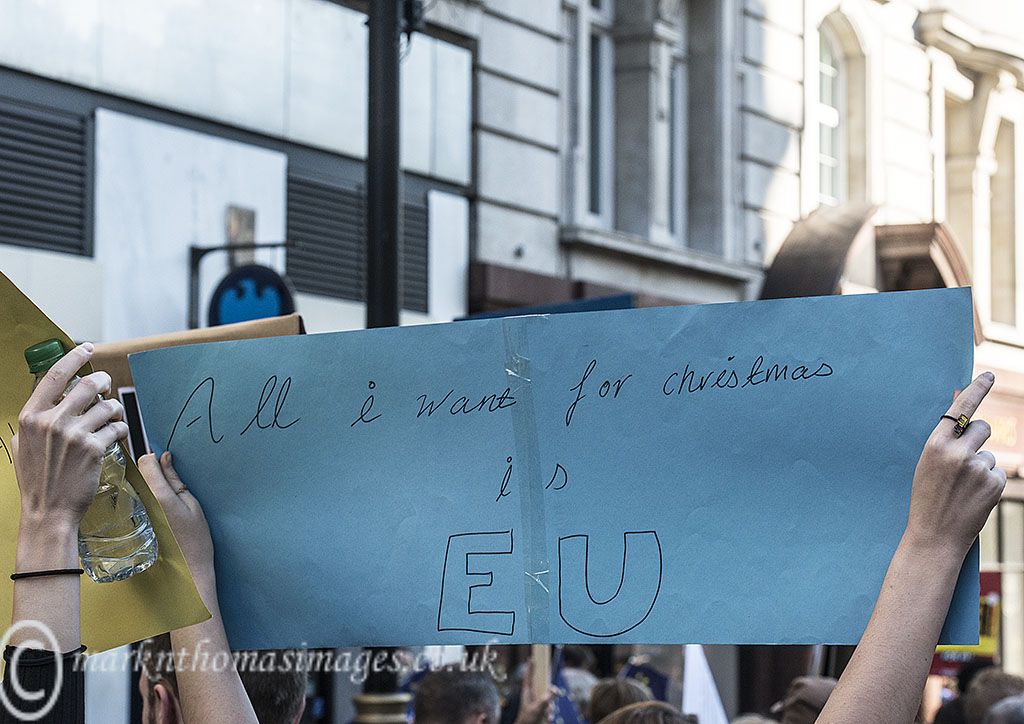 All i want for christmas
is
EU
© marknthomasimages.co.uk